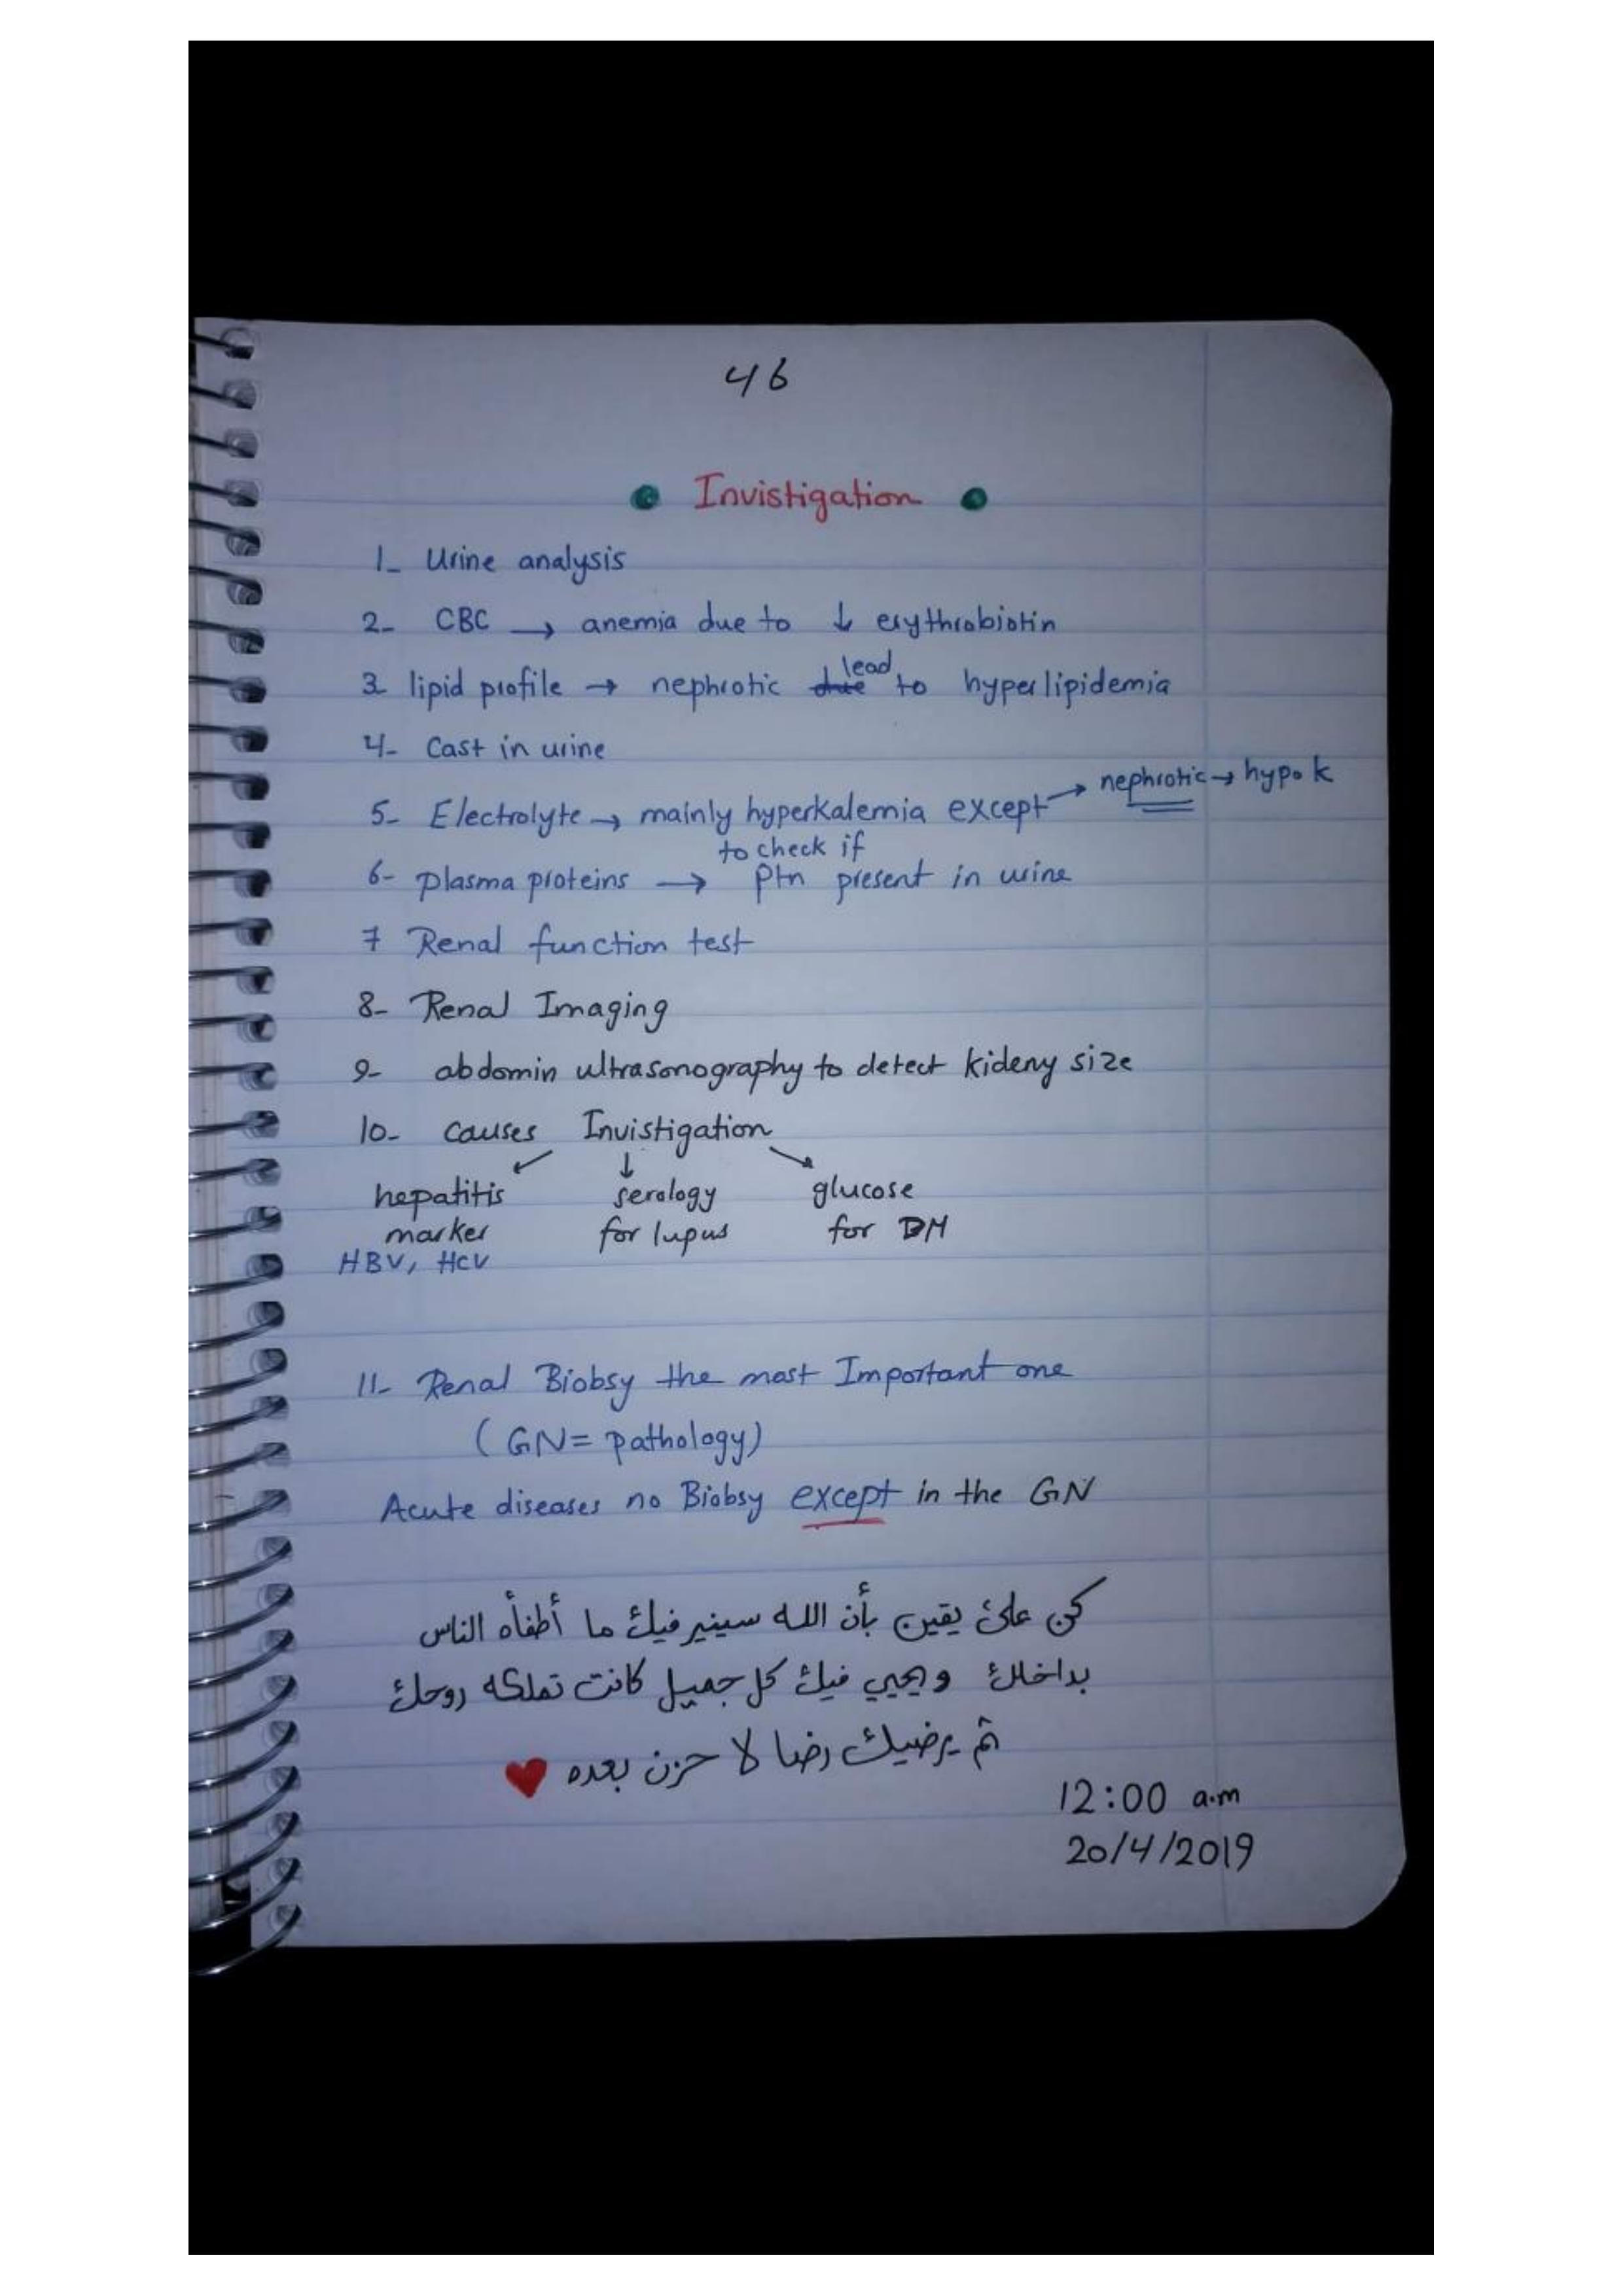 46
Invistigation
1_ Urine analysis
2- CBC → anemia due to ↓ erythrobiotin
3 lipid profile → nephrotic ~~due~~ lead to hyperlipidemia
4- Cast in urine
5- Electrolyte → mainly hyperkalemia except → nephrotic → hypo k
to check if
6- plasma proteins → Ptn present in urine
7 Renal function test
8- Renal Imaging
9- abdomin ultrasonography to detect kideny size
10- causes Invistigation
↙ ↓ ↘
hepatitis serology glucose
marker for lupus for DM
HBV, HCV
11- Renal Biobsy the most Important one
(GN= pathology)
Acute diseases no Biobsy except in the GN
كن على يقين بأن الله سينير فيك ما أطفأه الناس
بداخلك ويحيي فيك كل جميل كانت تملكه روحك
ثم يرضيك رضا لا حزن بعده ♥
12:00 a.m
20/4/2019